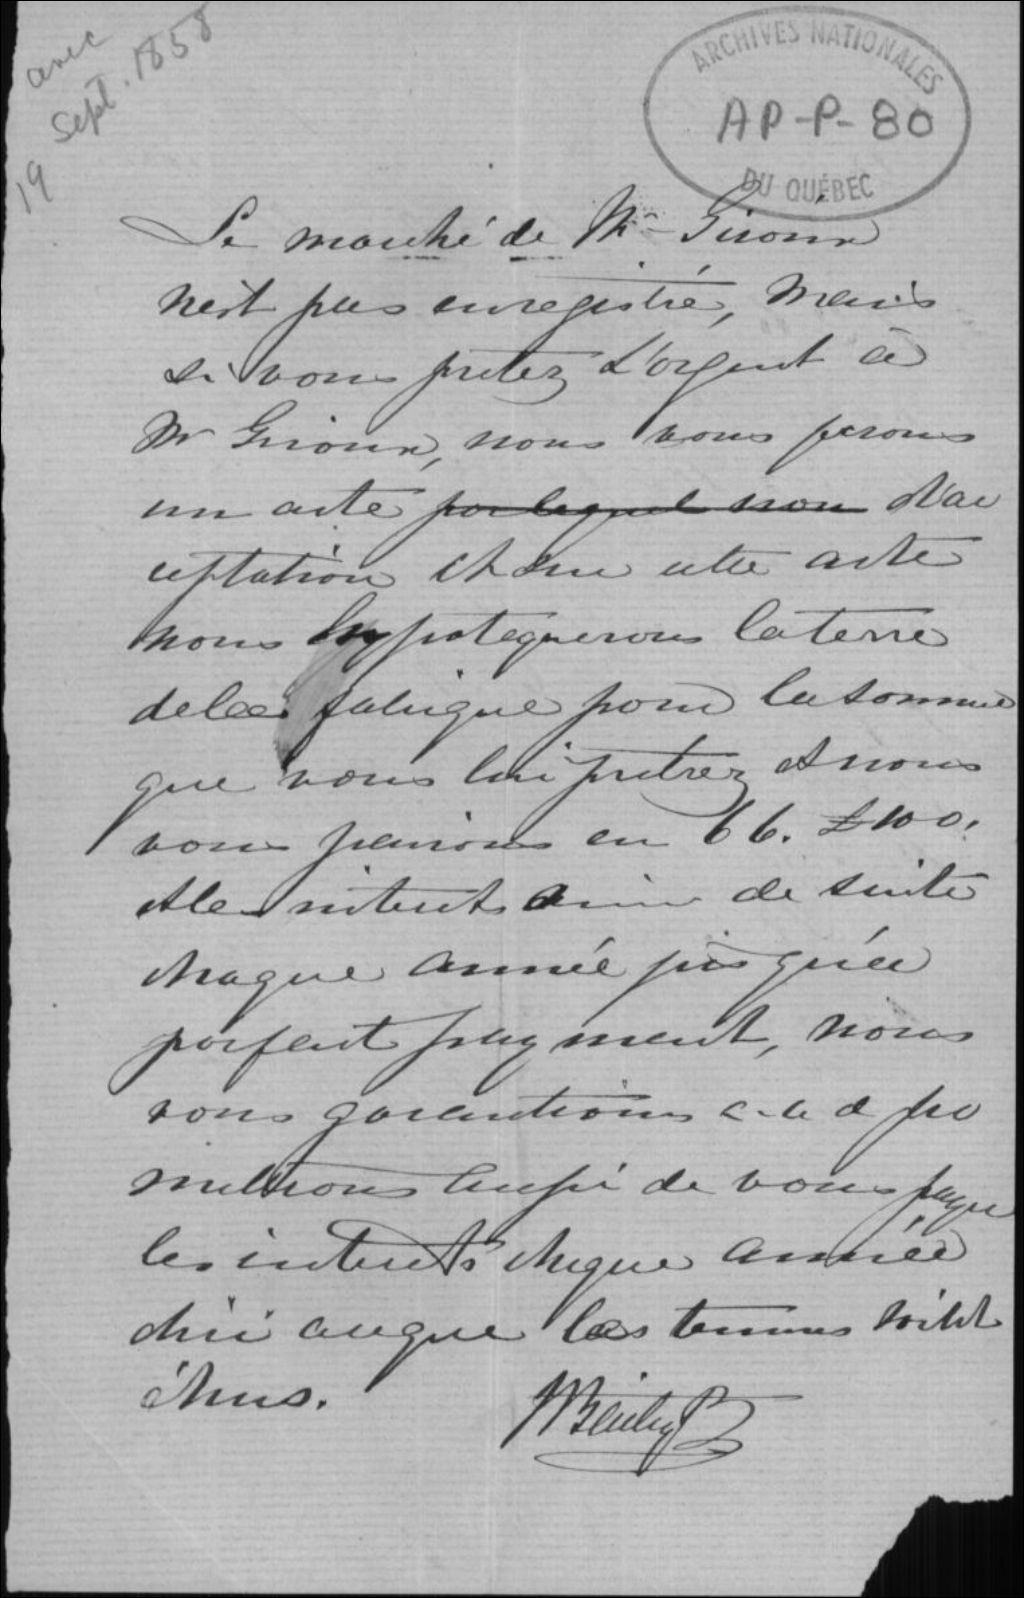 avec
19 Sept. 1858
ARCHIVES NATIONALES
AP-P-80
DU QUÉBEC
Le marché de Mr Giroux
n'est pas enregistré, mais
si vous pretez L'argent à
Mr Giroux, nous vous ferons
un acte par lequel nou d'ac
ceptation et dans cette acte
nous hypotequerons la terre
de la fabrique pour la somme
que vous lui pretrez et nous
vous pairons en 66. £100.
et les interets ainsi de suite
chaque année jusqu'à
parfait payment, nous
vous garantirons c-a-d pro
mettrons aussi de vous payer
les interets chaque année
d'ici a ce que les termes soient
échus.